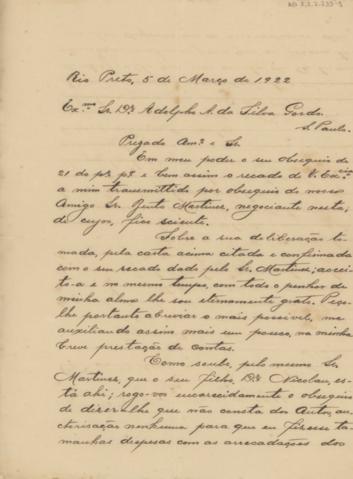 AG 2.2.2.235-3
Rio Preto, 5 de Março de 1922
Ex.mo Sr. Dr. Adolpho A. da Silva Gordo.
S. Paulo.
Prezado Am.o e Sr.
Em meu poder o seu obsequio de
21 do p.o p.o e bem assim o recado de V. Excia
a mim transmittido por obsequio do nosso
Amigo Sr. Martinez, negociante nesta,
de cujos, fico sciente.
Sobre a sua deliberação to-
mada, pela carta acima citada e confirmada
com o seu recado dado pelo Sr. Martinez; accei-
to-a e ao mesmo tempo, com todo o penhor de
minha alma lhe sou eternamente grato. Peço-
lhe portanto abreviar o mais possivel, me
auxiliando assim mais um pouco, na minha
breve prestação de contas.
Como soube, pelo mesmo Sr.
Martinez, que o seu filho, Dr. Nicolau, es-
tá ahi; rogo-vos encarecidamente o obsequio
de dizer-lhe que não consta dos Autos, au-
cthorisação nenhuma para que eu fizesse ta-
manhas despesas com as arrecadações dos